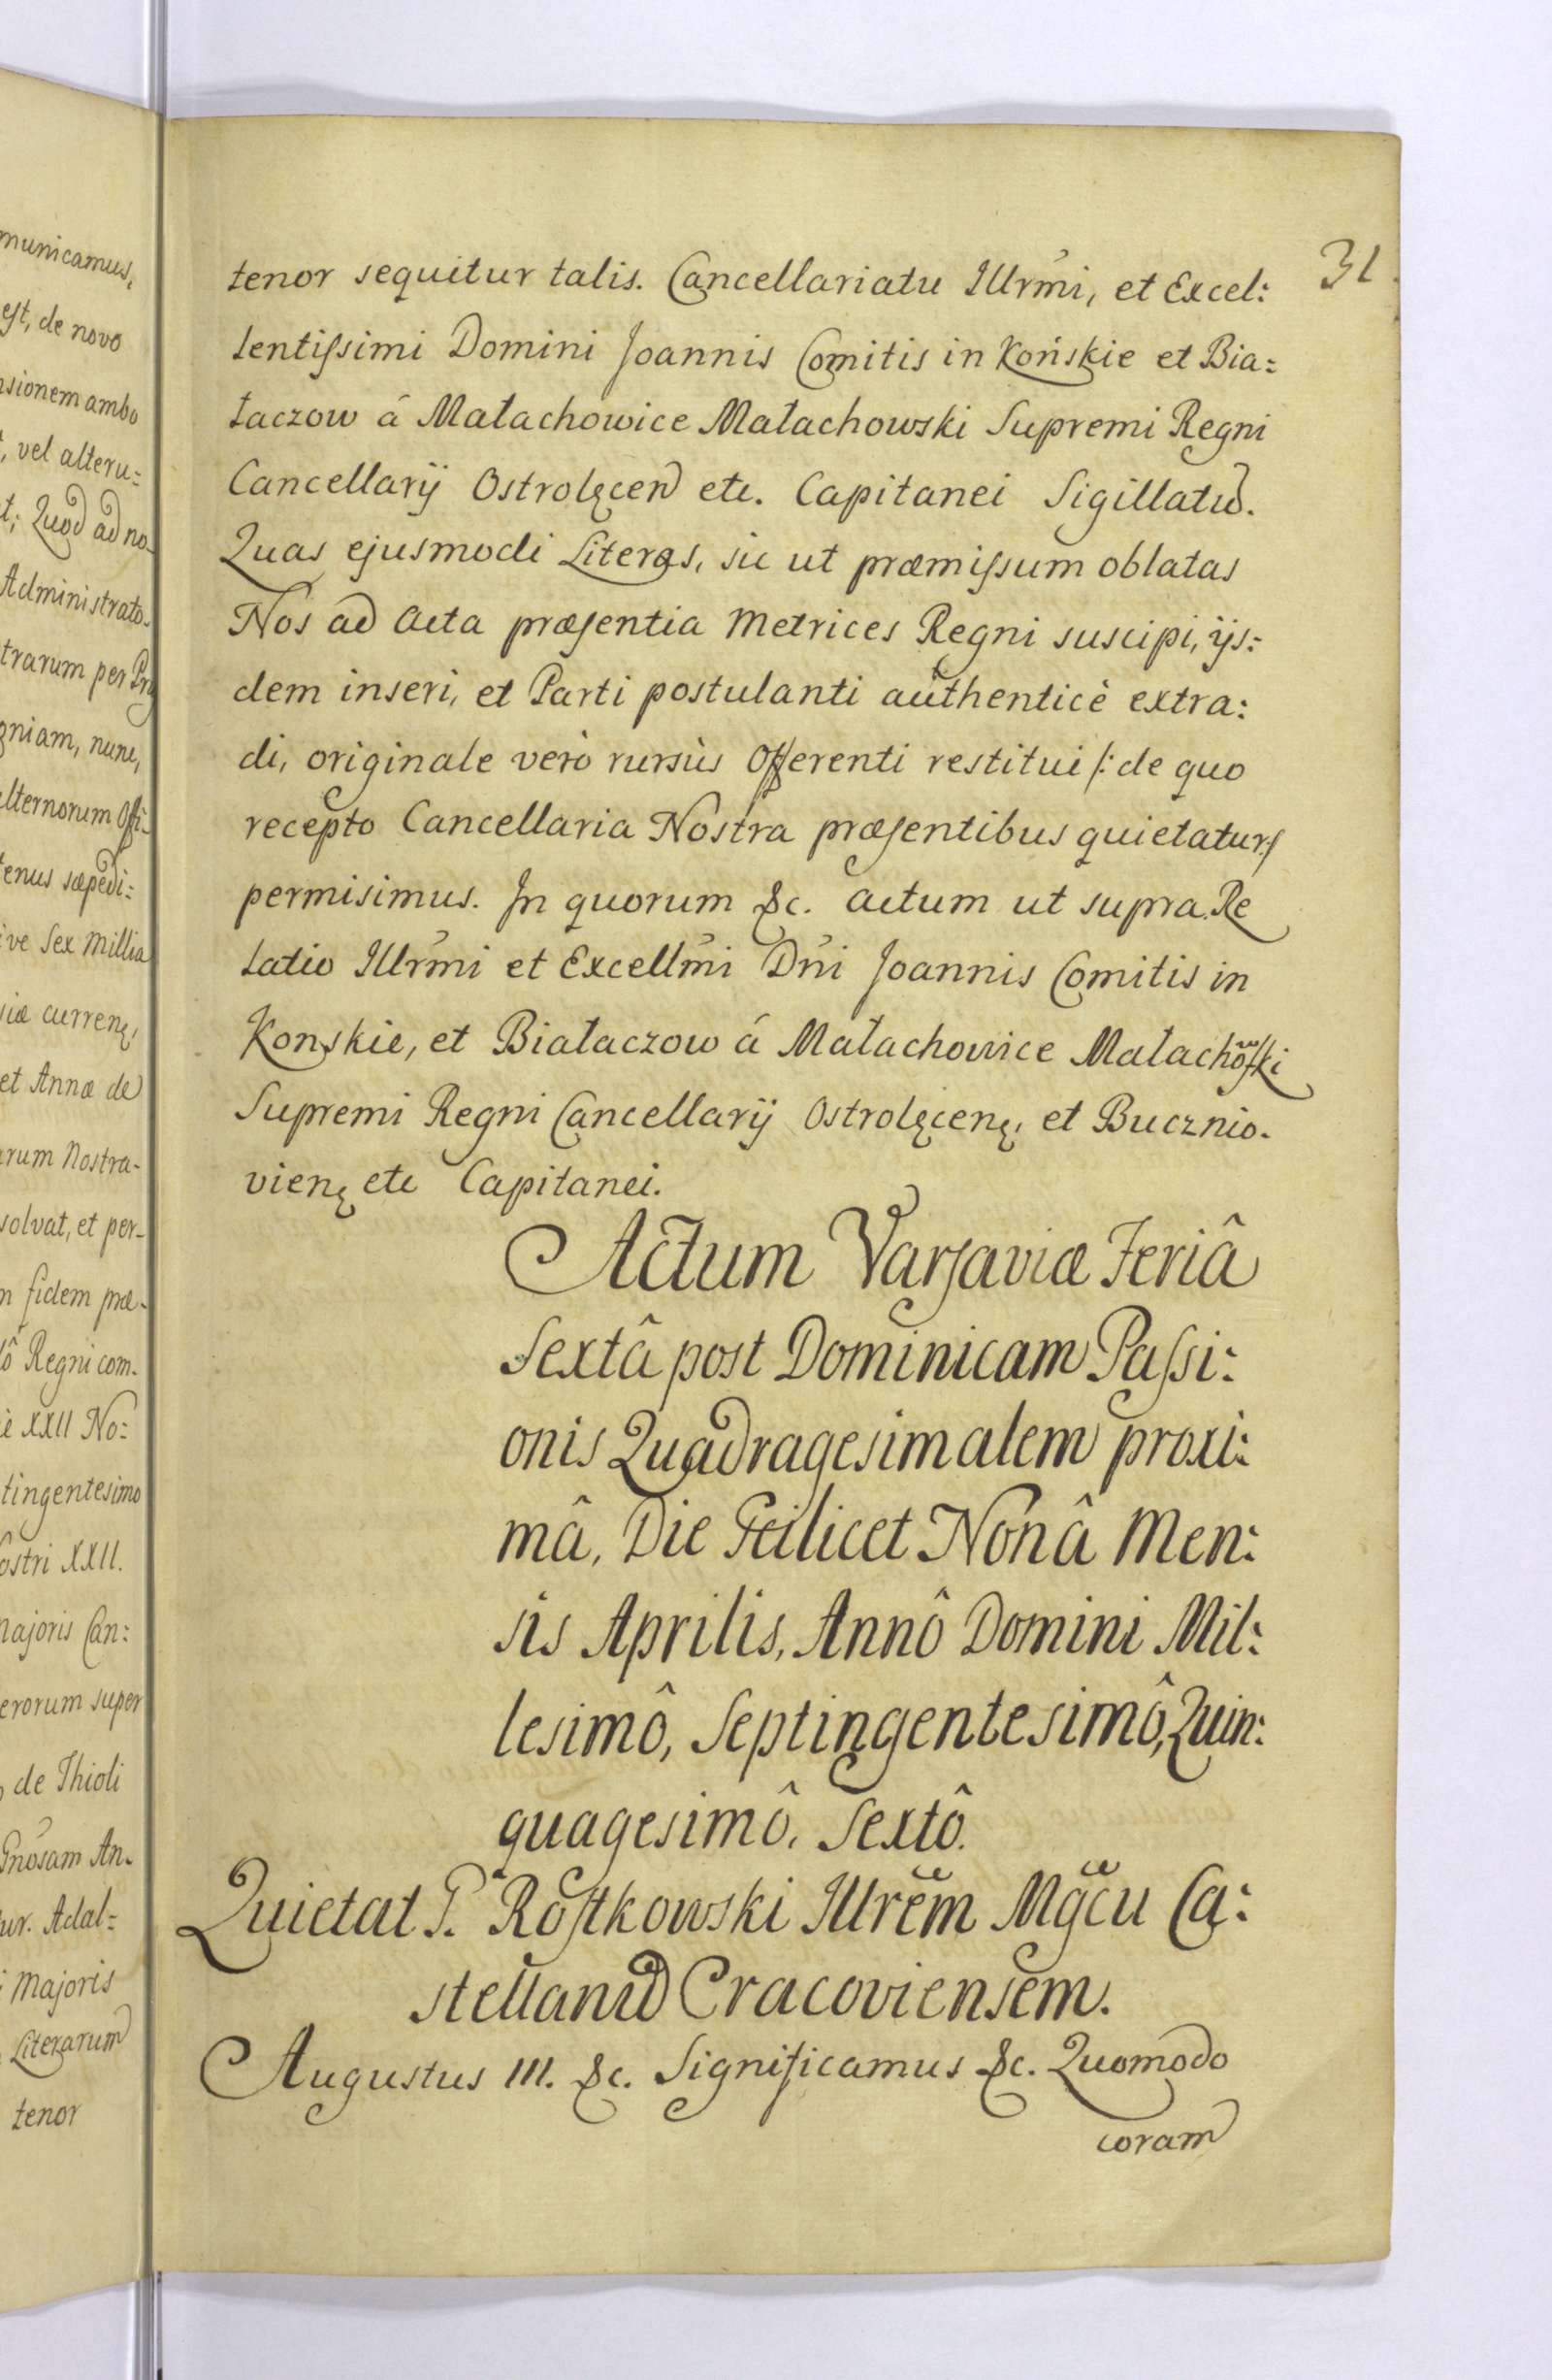 municamus,
est, de novo
nsionem ambo
vel alteru=
t; Quod ad no-
Administrato-
trarum per
gniam, nunc,
alternorum Offi-
tenus sæpedi=
ive Sex Millia
iæ currenę,
et Annæ de
arum Nostra-
solvat, et per-
m fidem præ-
Regni com-
XXII No=
tingentesimo
ostri XXII.
majoris Can:
erorum super
de Thioli
Gnosam An-
ur. Adal=
Majoris
Literarum
tenor
31.
tenor sequitur talis. Cancellariatu Illrmi, et Excel:
lentissimi Domini Joannis Comitis in Końskie et Bia=
łaczow á Małachowice Małachowski Supremi Regni
Cancellarij Ostrolęcen etc. Capitanei Sigillatu.
Quas ejusmodi Literas, sic ut præmissum oblatas
Nos ad Acta præsentia Metrices Regni suscipi, ijs:
dem inseri, et Parti postulanti authenticè extra:
di, originale verò rursùs Offerenti restitui /: de quo
recepto Cancellaria Nostra præsentibus quietatur:/
permisimus. In quorum &c. Actum ut supra. Re
latio Illrmi et Excellmi Dni Joannis Comitis in
Konskie, et Białaczow á Małachowice Małachowski
Supremi Regni Cancellarij Ostrolęcenę, et Bucznio-
vienę etc Capitanei.
Actum Varsaviæ Feriâ
Sextâ post Dominicam Passi:
onis Quadragesimalem proxi:
mâ, Die Scilicet Nonâ Men:
sis Aprilis, Annô Domini Mil:
lesimô, Septingentesimô, Quin:
quagesimô, Sextô.
Quietat P. Rostkowski Illrem Mgcu Ca:
stellanu Cracoviensem.
Augustus III. &c. Significamus &c. Quomodo
coram